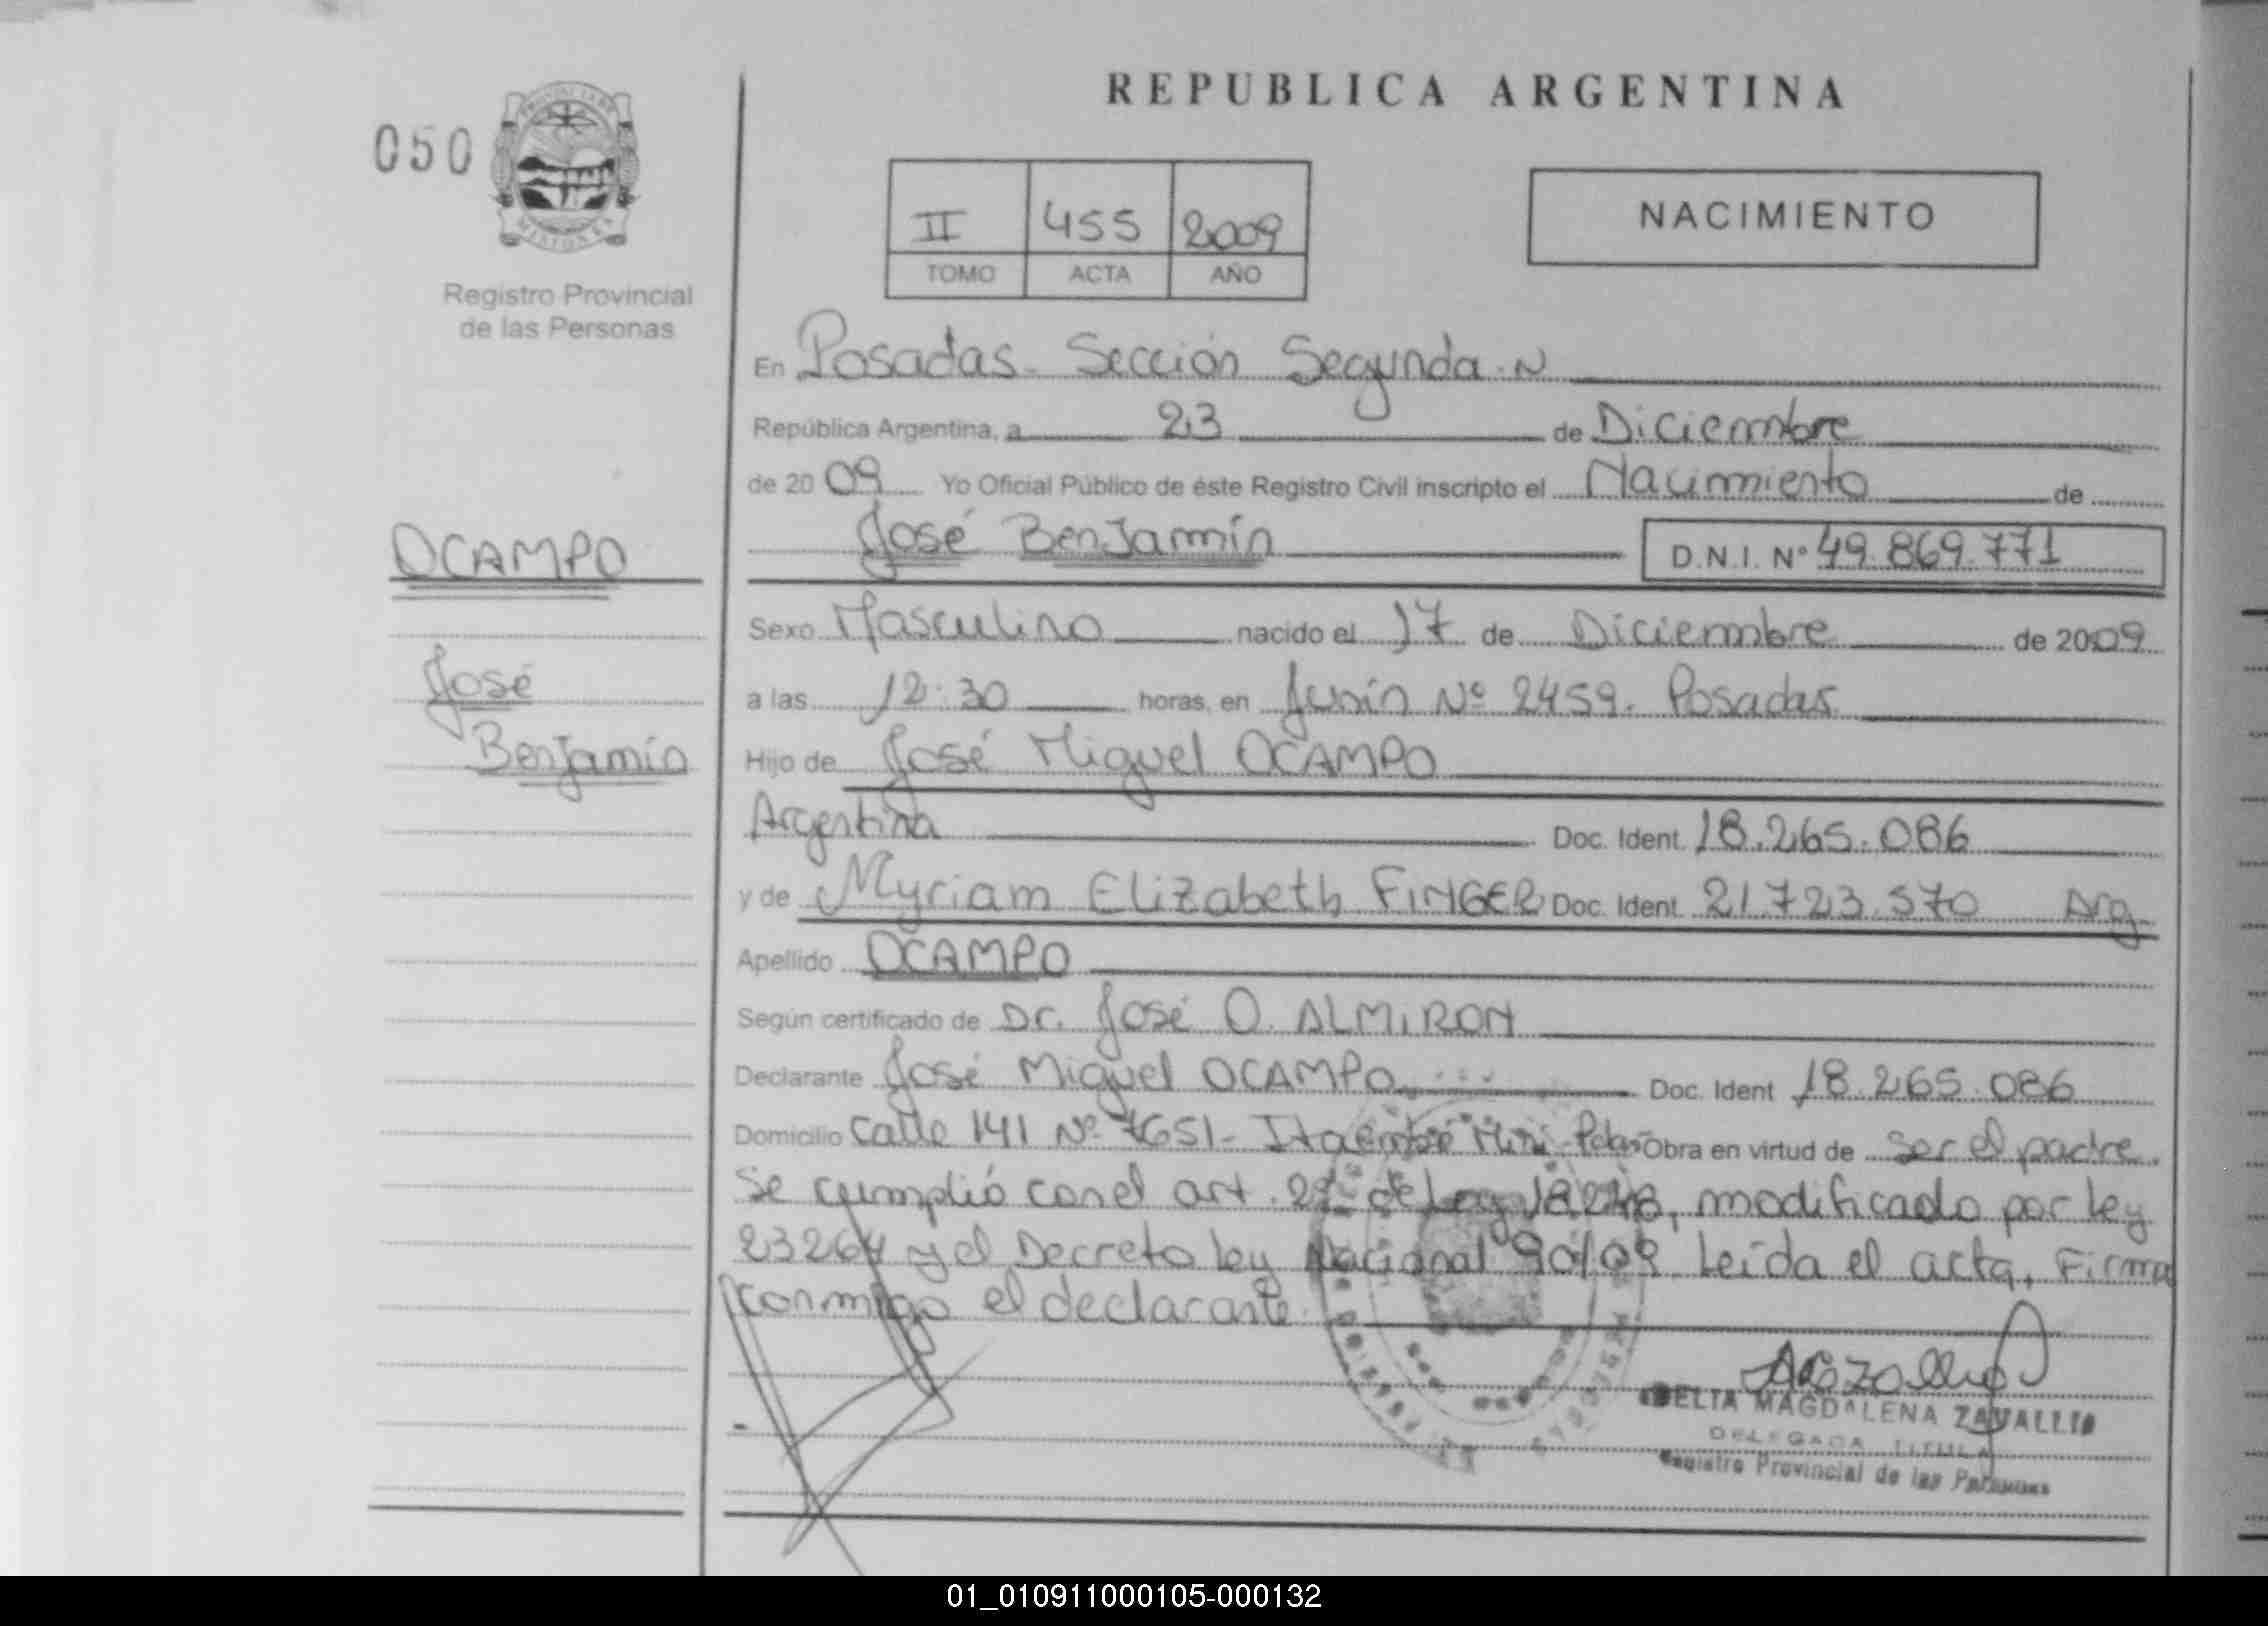 REPUBLICA ARGENTINA
050
PROVINCIA DE
MISIONES
Registro Provincial
de las Personas
II 455 2009
TOMO ACTA AÑO
NACIMIENTO
En Posadas - Sección Segunda. N
República Argentina, a 23 de Diciembre
de 20 09 Yo Oficial Público de éste Registro Civil inscripto el Nacimiento de
José Benjamín D.N.I. Nº 49.869.771
OCAMPO
José
Benjamín
Sexo Masculino nacido el 17 de Diciembre de 2009
a las 12:30 horas, en Junín Nº 2459. Posadas
Hijo de José Miguel OCAMPO
Argentina Doc. Ident. 18.265.086
y de Myriam Elizabeth FINGER Doc. Ident. 21.723.570 Arg.
Apellido OCAMPO
Según certificado de Dr. José O. ALMIRON
Declarante José Miguel OCAMPO Doc. Ident 18.265.086
Domicilio Calle 141 Nº 7651 - Itaembé Miní - Obra en virtud de ser el padre.
Se cumplió con el art. de Ley 18248, modificado por ley
23264 y el Decreto ley Nacional 90/09. Leída el acta, Firma
conmigo el declarante.
DELIA MAGDALENA ZAVALLIO
DELEGADA TITULAR
Registro Provincial de las Personas
01_010911000105-000132